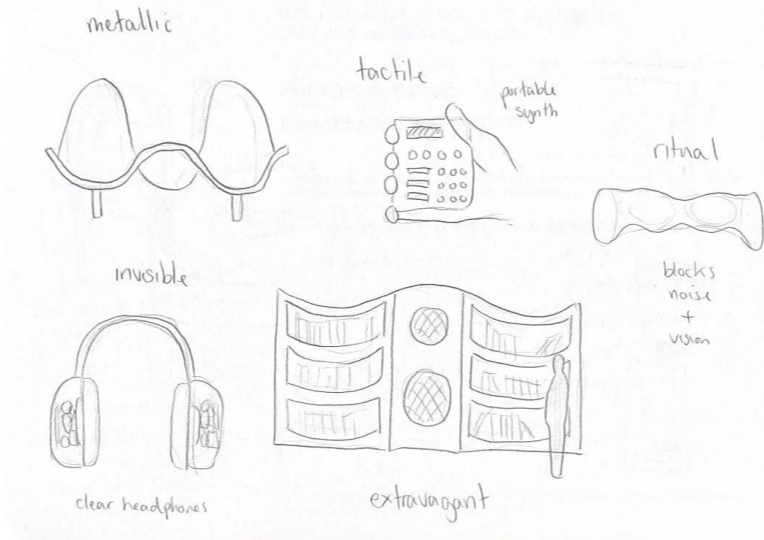 metallic
tactile
portable
synth
ritual
blocks
noise
+
vision
invisible
clear headphones
extravagant